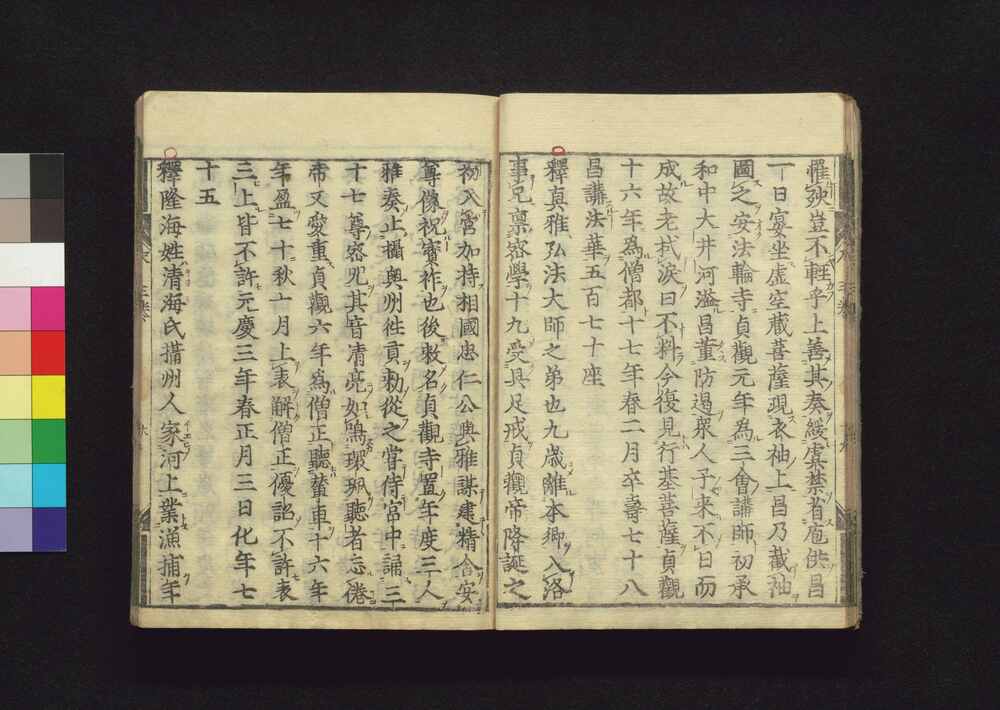 懼殃豈不輕乎上善其奏緩虞禁省庖供昌
一日宴坐虛空藏菩薩現衣袖上昌乃截袖
圖之安法輪寺貞觀元年為三會講師初承
和中大井河溢昌董防遏衆人子來不日而
成故老拭淚曰不料今復見行基菩薩貞觀
十六年為僧都十七年春二月卒壽七十八
昌講法華五百七十座
釋真雅弘法大師之弟也九歲離本鄉入洛
事兄稟密學十九受具足戒貞觀帝降誕之
初入宮加持相國忠仁公與雅謀建精舍安
尊像祝寶祚也後敕名貞觀寺置年度三人
雅奏止攝輿州徃貢勅從之嘗侍宮中誦三
十七尊密咒其音清亮如鴻環珮聽者忘倦
帝又愛重貞觀六年為僧正聽輦車十六年
年盈七十秋七月上表辭僧正優詔不許表
三上皆不許元慶三年春正月三日化年七
十五
釋隆海姓清海氏攝州人家河上業漁捕年